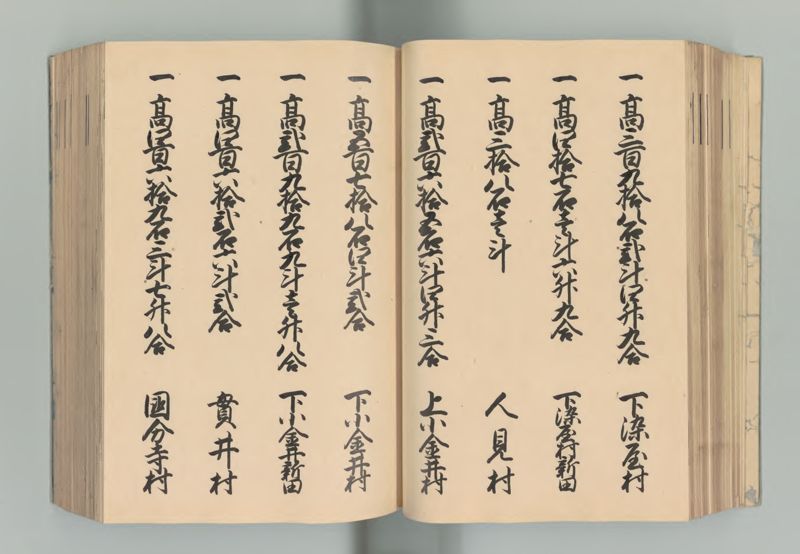 一 高三百九拾八石弐斗四升九合 下染屋村
一 高四拾七石壱斗六升九合 下染屋村新田
一 高三拾八石壱斗 人見村
一 高弐百六拾五石六斗四升三合 上小金井村
一 高五百七拾八石四斗弐合 下小金井村
一 高弐百九拾九石九斗壱升八合 下小金井新田
一 高四百六拾弐石六斗弐合 貫井村
一 高四百六拾九石三斗七升八合 國分寺村